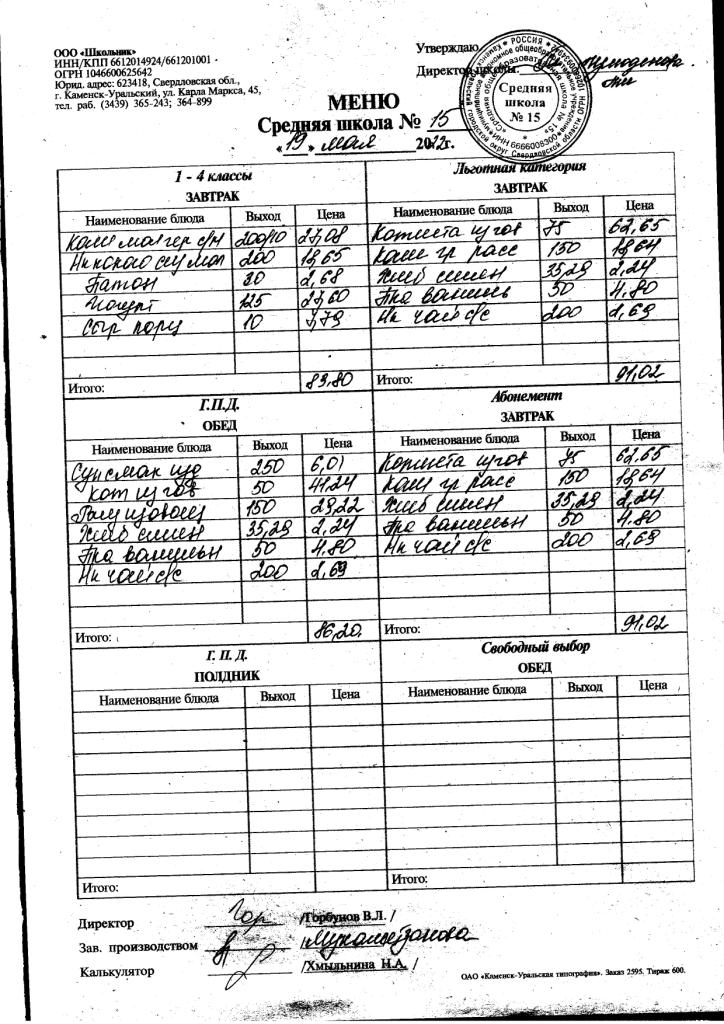 ООО «Школьник»
ИНН/КПП 6612014924/661201001
ОГРН 1046600625642
Юрид. адрес: 623418, Свердловская обл.,
г. Каменск-Уральский, ул. Карла Маркса, 45,
тел. раб. (3439) 365-243; 364-899
Утверждаю
Директор школы:
Средняя
школа
№ 15
МЕНЮ
Средняя школа № 15
«19» мая 2022г.
1 - 4 классы
ЗАВТРАК
Наименование блюда Выход Цена
Каша мол гер с/м 200/10 27,08
Нк какао сгу мол 200 18,65
Батон 30 2,68
Йогурт 125 27,60
Сыр порц 10 7,79
Итого: 83,80
Льготная категория
ЗАВТРАК
Наименование блюда Выход Цена
Котлета 75 62,65
Каша гр расс 150 18,64
Хлеб 35,29 2,24
ванильн 50 4.80
Нк чай с/с 200 2,69
Итого: 91,02
Г.П.Д.
ОБЕД
Наименование блюда Выход Цена
Суп 250 6,01
Кот 50 41,24
150 29,22
Хлеб 35,29 2,24
ванильн 50 4.80
Нк чай с/с 200 2,69
Итого: 86,20
Абонемент
ЗАВТРАК
Наименование блюда Выход Цена
Котлета 75 62,65
Каша гр расс 150 18,64
Хлеб 35,29 2,24
ванильн 50 4.80
Нк чай с/с 200 2,69
Итого: 91,02
Г. П. Д.
ПОЛДНИК
Наименование блюда Выход Цена
Итого:
Свободный выбор
ОБЕД
Наименование блюда Выход Цена
Итого:
Директор /Горбунов В.Л. /
Зав. производством
Калькулятор /Хмыльнина Н.А. /
ОАО «Каменск-Уральская типография». Заказ 2595. Тираж 600.